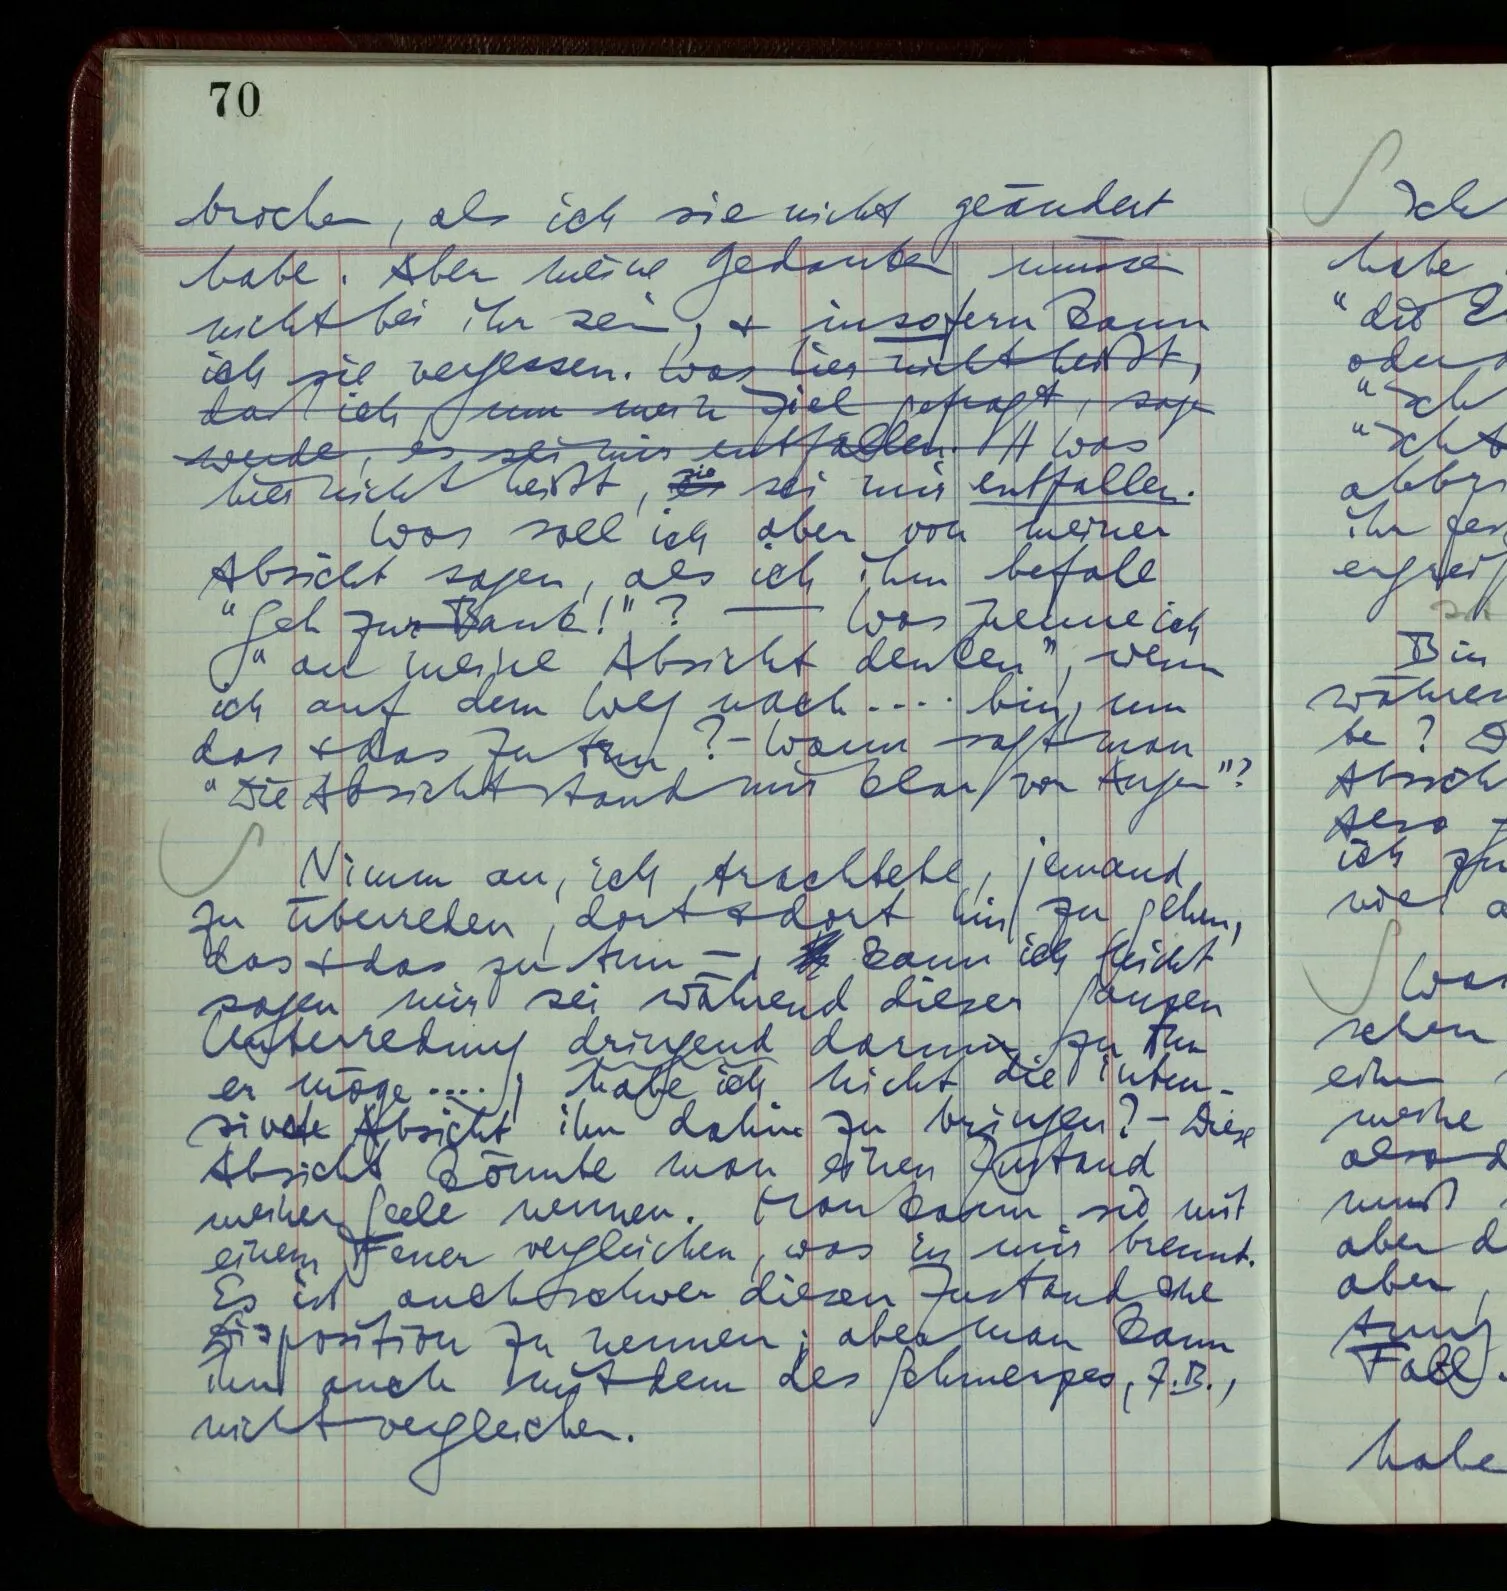 70
brochen, als ich sie nicht geändert
habe. Aber meine Gedanken müssen
nicht bei ihr sein, & insofern kann
ich sie vergessen. Was hier nicht heißt,
daß ich, um mein Ziel gefragt, sagen
werde, es sei mir entfallen. // Was
hier nicht heißt, es sie sei mir entfallen.
Was soll ich aber von meiner
Absicht sagen, als ich ihm befahl
"Geh zur Bank!"? — Was nenne ich
"an meine Absicht denken", wenn
ich auf dem Weg nach .... bin, um
das & das zu tun? – Wann sagt man
"Die Absicht stand mir klar vor Augen"?
Nimm an, ich trachtete, jemand
zu überreden, dort & dort hin zu gehen,
das & das zu tun –, kann ich leicht
sagen mir sei während dieser ganzen
Unterredung dringend darum zu tun
er möge ....; habe ich nicht die inten-
sivste Absicht ihn dahin zu bringen? – Diese
Absicht könnte man einen Zustand
meiner Seele nennen. Man kann sie mit
einem Feuer vergleichen, was in mir brennt.
Es ist auch schwer diesen Zustand eine
Disposition zu nennen; aber man kann
ihn auch mit dem des Schmerzes, z.B.,
nicht vergleichen.
Ich
habe
"die
oder
"Ich
"Ich
abbr
ihr
ergreif
Bin
während
be?
Absich
Also
ich zu
viel
Was
schen
einen
meine
also
muß
aber d
aber,
Fall.
habe